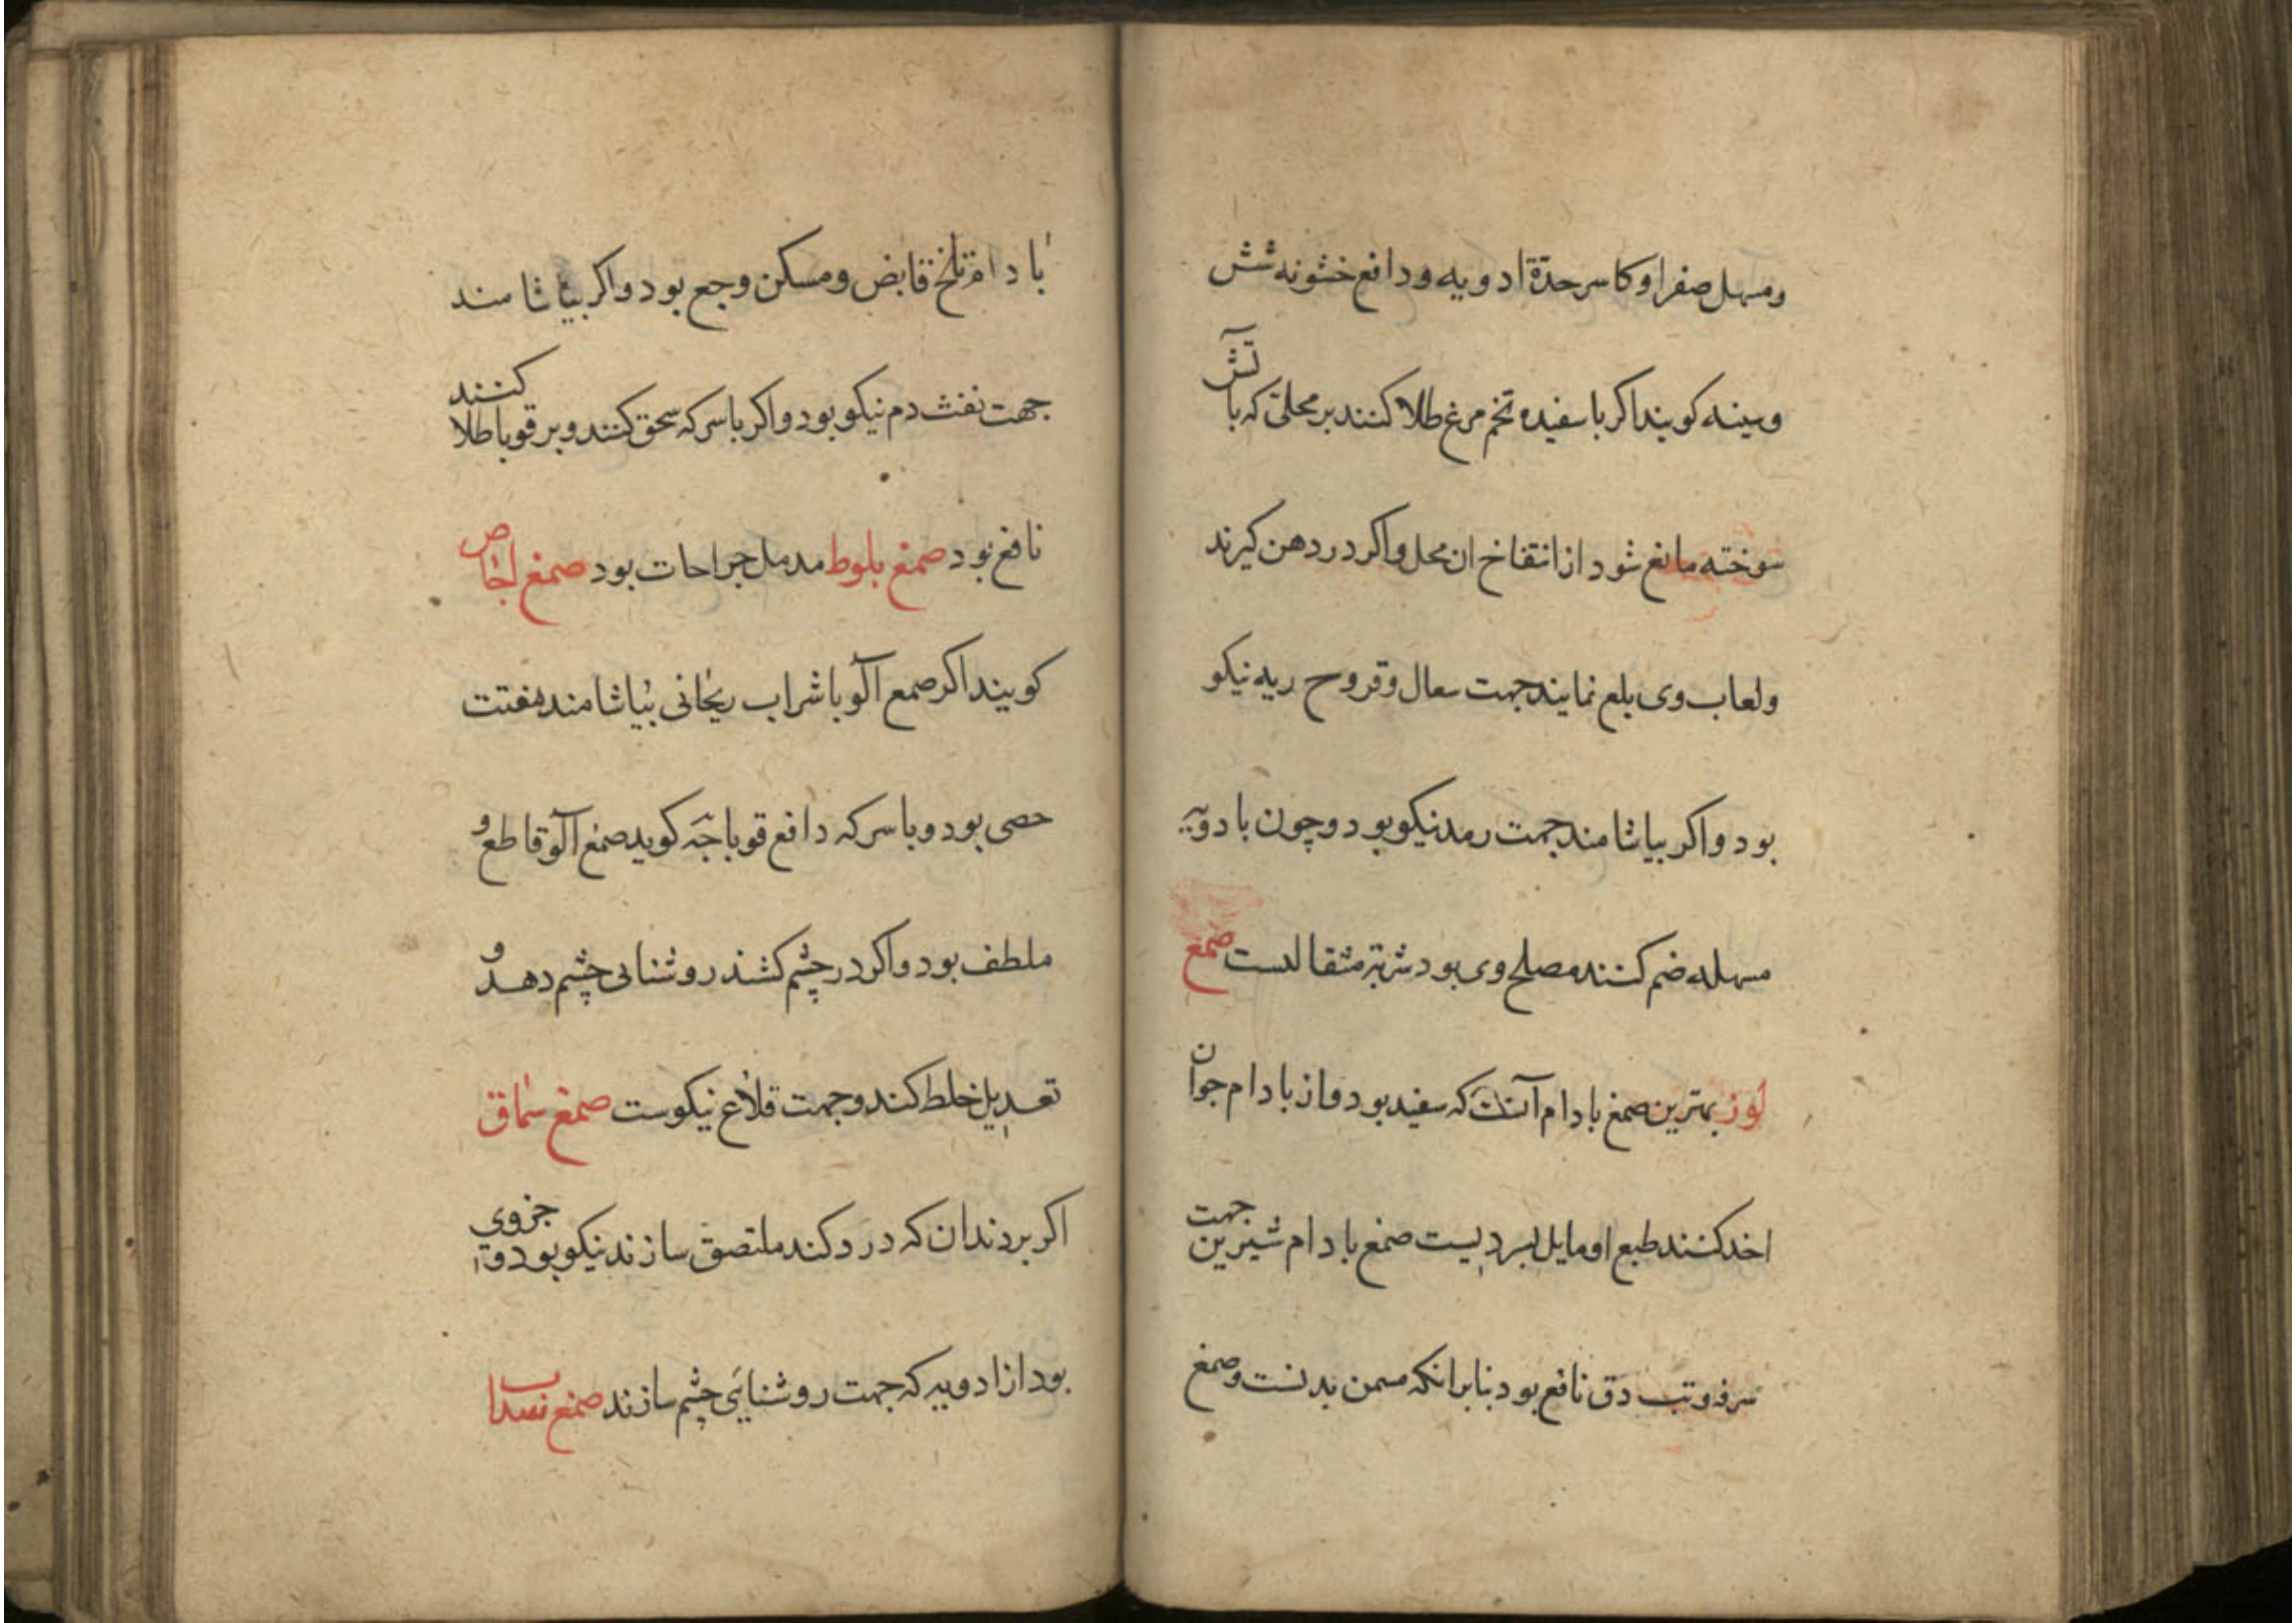 ومسهل صفرا وکاسر حدة ادویه ودافع خشونه شش
وسینه کویند اکر با سفیده تخم مرغ طلا کنند بر محلی که باتش
سوخته مانع شود از انتفاخ ان محل واکر در دهن کیرند
ولعاب وی بلع نمایند جهت سعال وقروح ریه نیکو
بود واکر بیاشامند جهت رمد نیکو بود وچون با دویه
مسهله ضم کنند مصلح وی بود شربته مثقالست صمغ
لوز بهترین صمغ بادام آنست که سفید بود واز بادام جوان
اخد کنند طبع او مایل ببردیست صمغ بادام شیرین جهت
سرفه وتب دق نافع بود بنابر انکه مسمن بدنست وصمغ
بادام تلخ قابض ومسکن وجع بود واکر بیاشامند
جهت نفث دم نیکو بود واکر با سرکه سحق کنند وبر قوبا طلا کنند
نافع بود صمغ بلوط مدمل جراحات بود صمغ اجاص
کویند اکر صمع آلو با شراب ریحانی بیاشامند مفتت
حصی بود وبا سرکه دافع قوبا جه کوید صمغ آلو قاطع و
ملطف بود واکر در چشم کشند روشنایی چشم دهد و
تعدیل خلط کند وجهت قلاع نیکوست صمغ سماق
اکر بر دندان که درد کند ملتصق سازند نیکو بود واجزوی
بود از ادویه که جهت روشنایی چشم سازند صمغ سداب